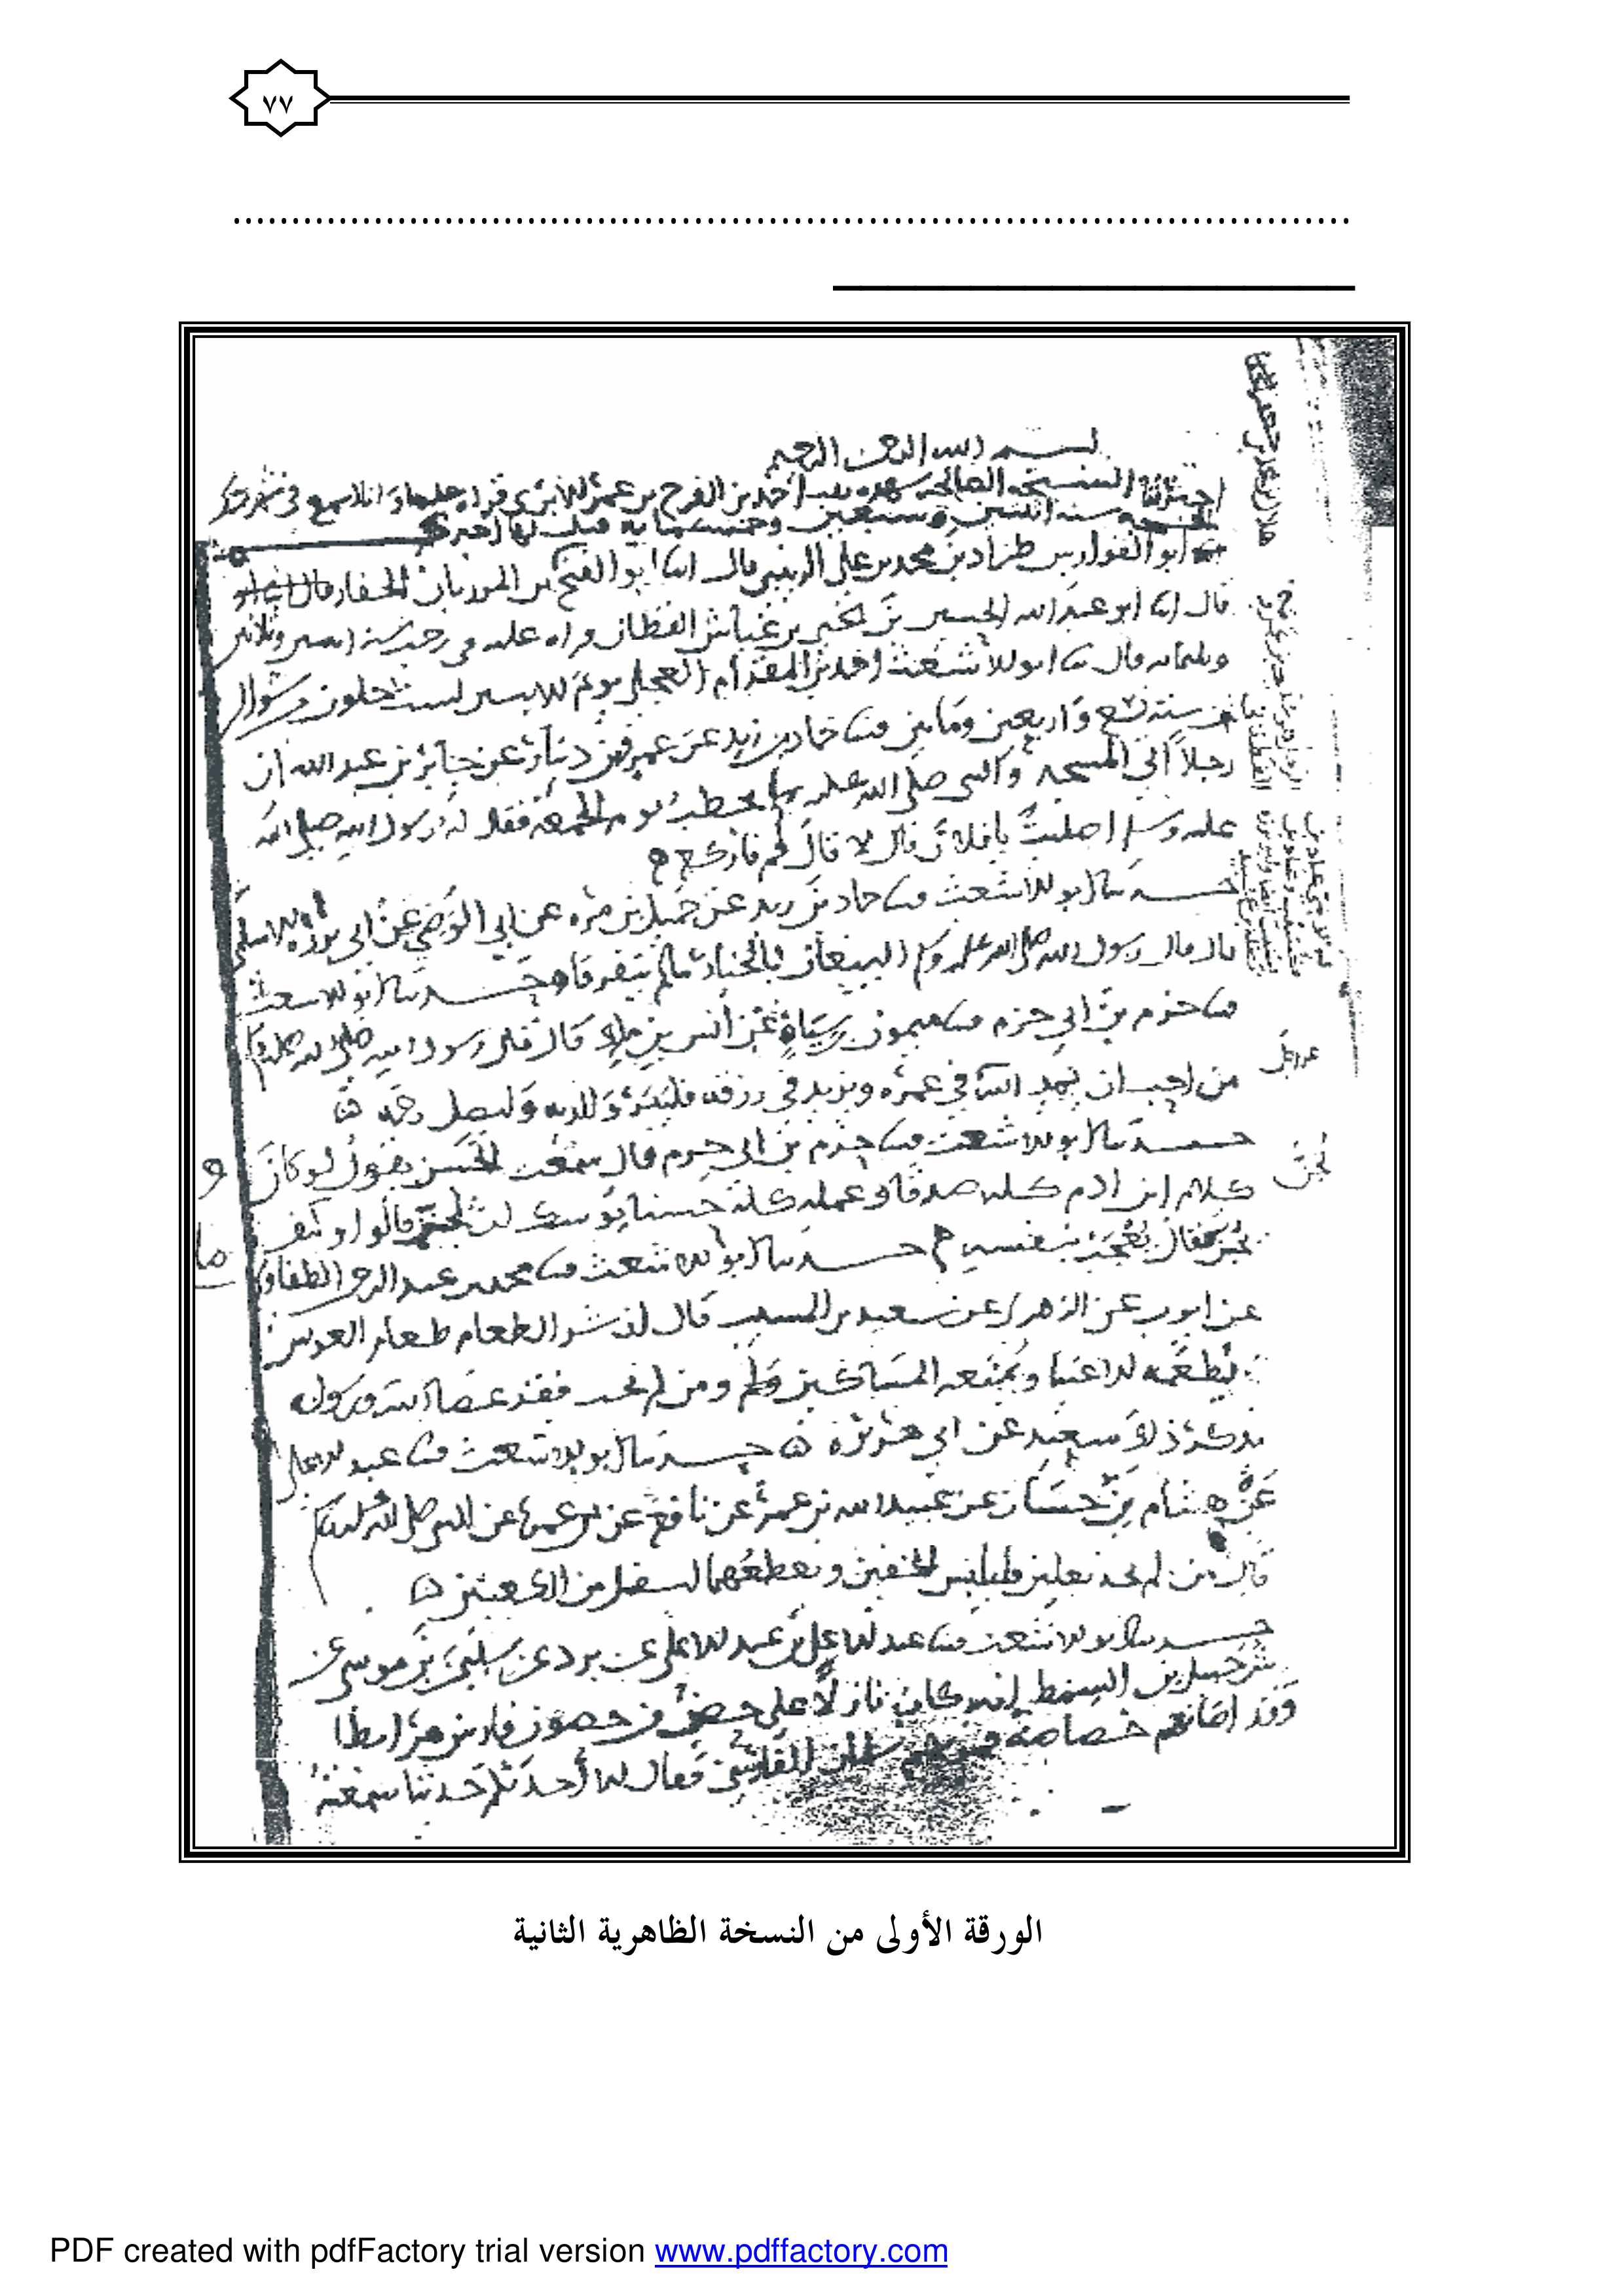 ٧٧
بسم الله الرحمن الرحيم
اخبرتنا الشيخة الصالحة شهدة بنت احمد بن الفرج بن عمر الابري قراة عليها وانا اسمع في
سنة اثنتين وسبعين وخمسمايه قيل لها اخبركم
ابو الفوارس طراد بن محمد بن علي الزينبي قال انا ابو الفتح الحفار
قال انا ابو عبد الله الحسين بن يحيى بن عياش القطان قراه عليه في سنة اثنين وثلاثين
وثلثمايه قال ثنا ابو الاشعث احمد بن المقدام العجلي يوم الاثنين لست خلون من شوال
من سنة تسع واربعين ومايتين ثنا حماد بن زيد عن عمرو بن دينار عن جابر بن عبد الله ان
رجلا اتى المسجد والنبي صلى الله عليه يخطب يوم الجمعه فقال له رسول الله صلى الله
عليه وسلم اصليت يا فلان قال لا قال قم فاركع
حدثنا ابو الاشعث ثنا حماد بن زيد عن جميل بن مره عن ابي الوضي عن ابي برزه الاسلمي
قال قال رسول الله صلى الله عليه وسلم البيعان بالخيار ما لم يتفرقا حدثنا ابو الاشعث
ثنا حزم بن ابي حزم ثنا ميمون بن سياه عن انس بن ملك قال قال رسول الله صلى الله عليه
من احب ان يمد الله في عمره ويزيد في رزقه فليبر والديه وليصل رحمه
حدثنا ابو الاشعث ثنا حزم بن ابي حزم قال سمعت الحسن يقول لو كان
كلام ابن ادم كله صدقا وعمله كله حسنا يوشك ان قالوا وكيف
قال يعجب بنفسه حدثنا ابو الاشعث ثنا محمد بن عبد الرحمن الطفاوي
عن ايوب عن الزهري عن سعيد بن المسيب قال ان شر الطعام طعام العرس
يطعمه الاغنيا ويمنعه المساكين ومن لم يجب فقد عصا الله ورسوله
يذكر ذلك سعيد عن ابي هريره حدثنا ابو الاشعث ثنا عبد الاعلى
عن هشام بن حسان عن عبيد الله بن عمر عن نافع عن بن عمر عن النبي صلى الله عليه
قال من لم يجد نعلين فليلبس الخفين ويقطعهما اسفل من الكعبين
حدثنا ابو الاشعث ثنا عبد الاعلى بن عبد الاعلى عن برد عن سليمن بن موسى عن
شرحبيل بن السمط انه كان نازلا على حصن من حصون فارس مرابطا
وقد اصابتهم خصاصة فمر بهم سلمان الفارسي فقال الا احدثكم حديثا سمعته
الورقة الأولى من النسخة الظاهرية الثانية
PDF created with pdfFactory trial version www.pdffactory.com